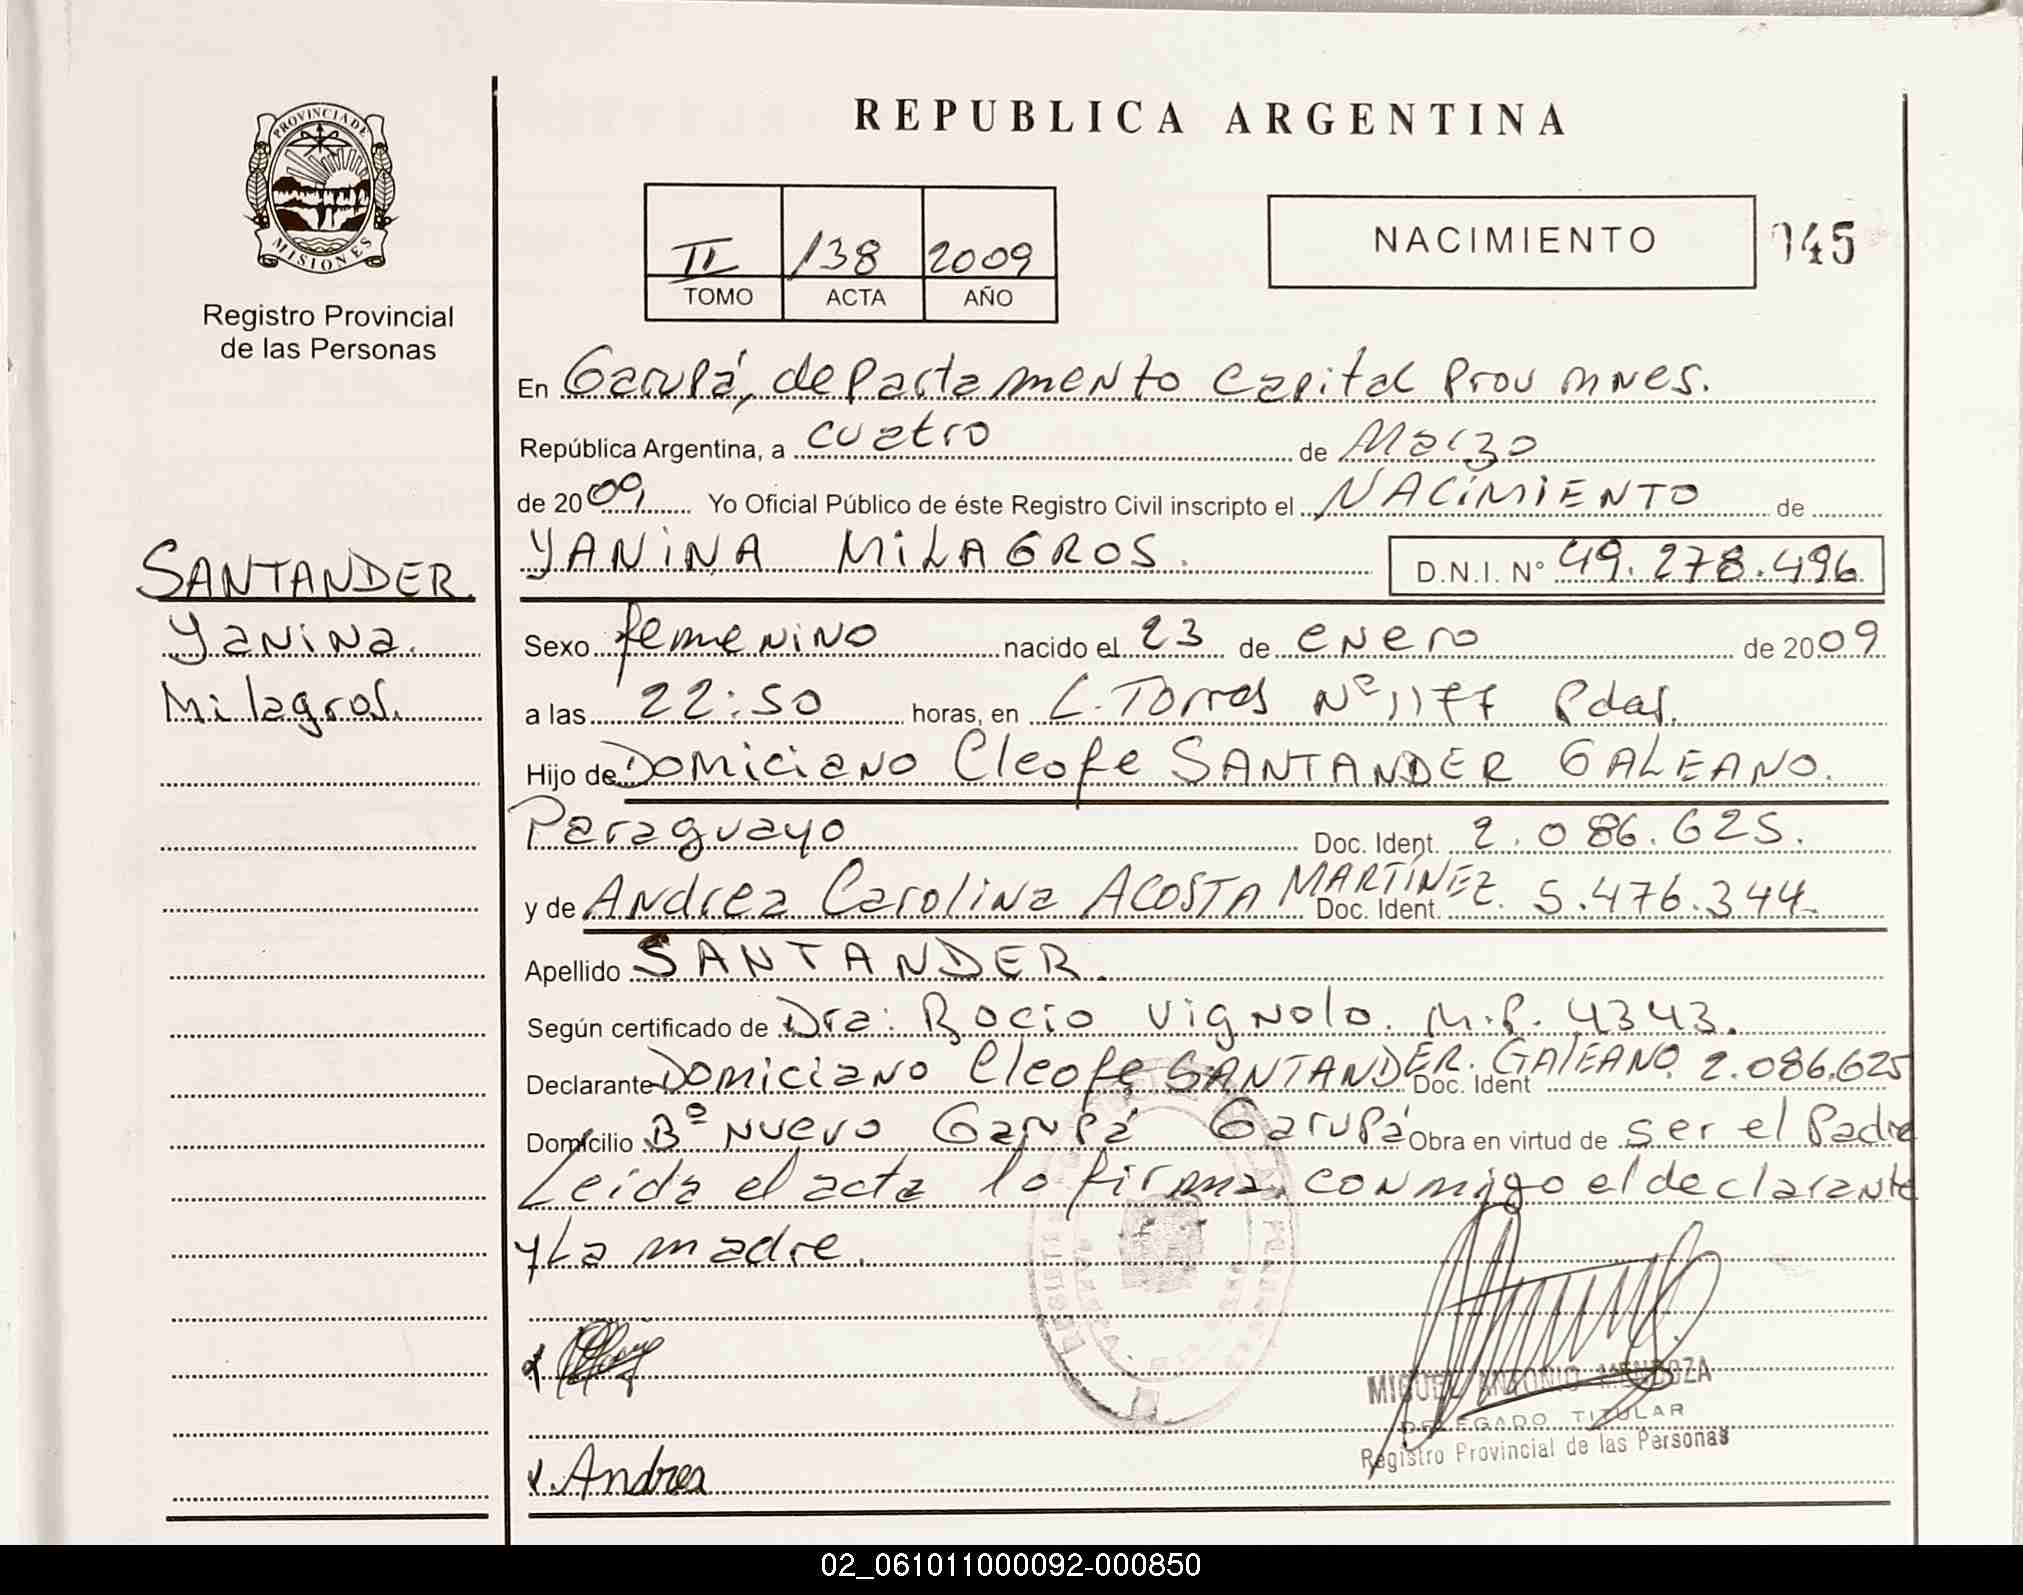 REPUBLICA ARGENTINA
PROVINCIA DE
MISIONES
Registro Provincial
de las Personas
II 138 2009
TOMO ACTA AÑO
NACIMIENTO
145
En Garupá, departamento Capital Prov mnes.
República Argentina, a cuatro de Marzo
de 2009 Yo Oficial Público de éste Registro Civil inscripto el NACIMIENTO de
YANINA MILAGROS. D.N.I. N° 49.278.496
SANTANDER
Yanina
Milagros.
Sexo femenino nacido el 23 de enero de 2009
a las 22:50 horas, en L. Torres Nº 1177 Pdas.
Hijo de Domiciano Cleofe SANTANDER GALEANO.
Paraguayo Doc. Ident. 2.086.625.
y de Andrea Carolina ACOSTA MARTÍNEZ. Doc. Ident. 5.476.344
Apellido SANTANDER.
Según certificado de Dra: Rocio Vignolo. M.P. 4343.
Declarante Domiciano Cleofe SANTANDER. GALEANO Doc. Ident 2.086.625
Domicilio Bº Nuevo Garupá Garupá Obra en virtud de ser el Padre
Leida el acta lo firma conmigo el declarante
y La madre.
Andrea
MIGUEL ANTONIO MENDOZA
DELEGADO TITULAR
Registro Provincial de las Personas
02_061011000092-000850